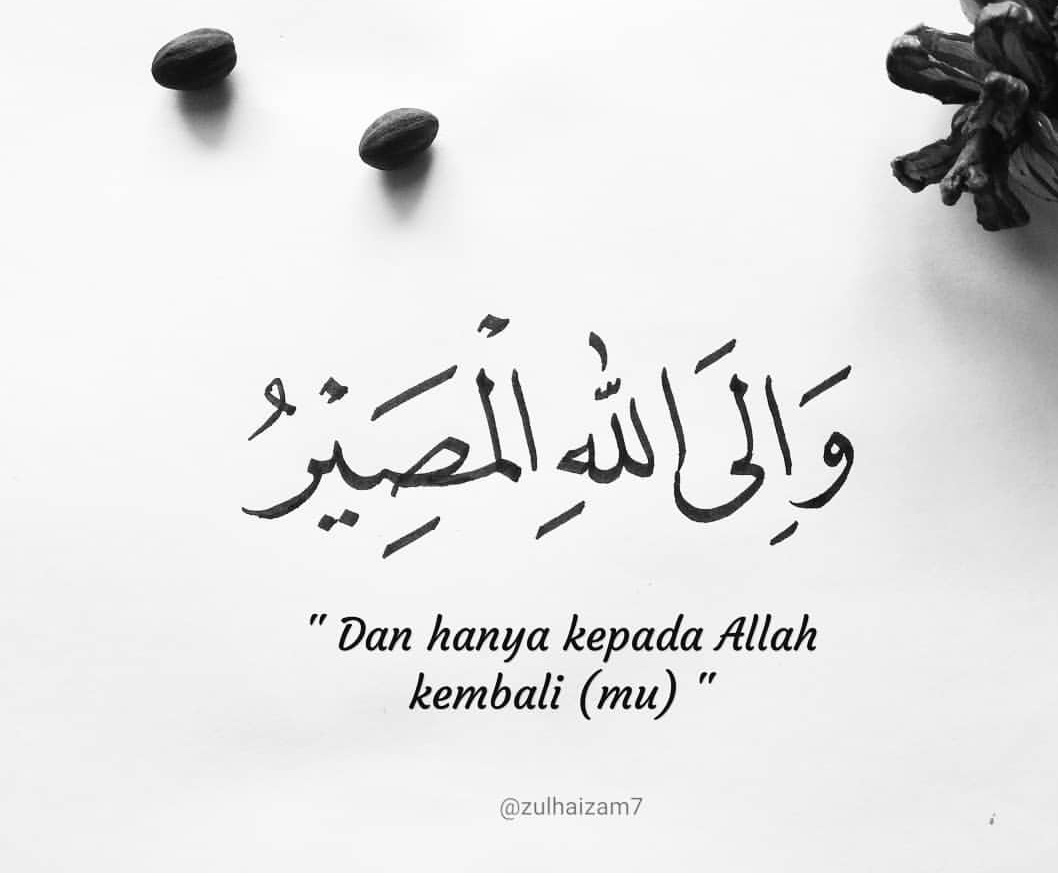 وَاِلَى اللّٰهِ الْمَصِيْرُ
" Dan hanya kepada Allah
kembali (mu) "
@zulhaizam7